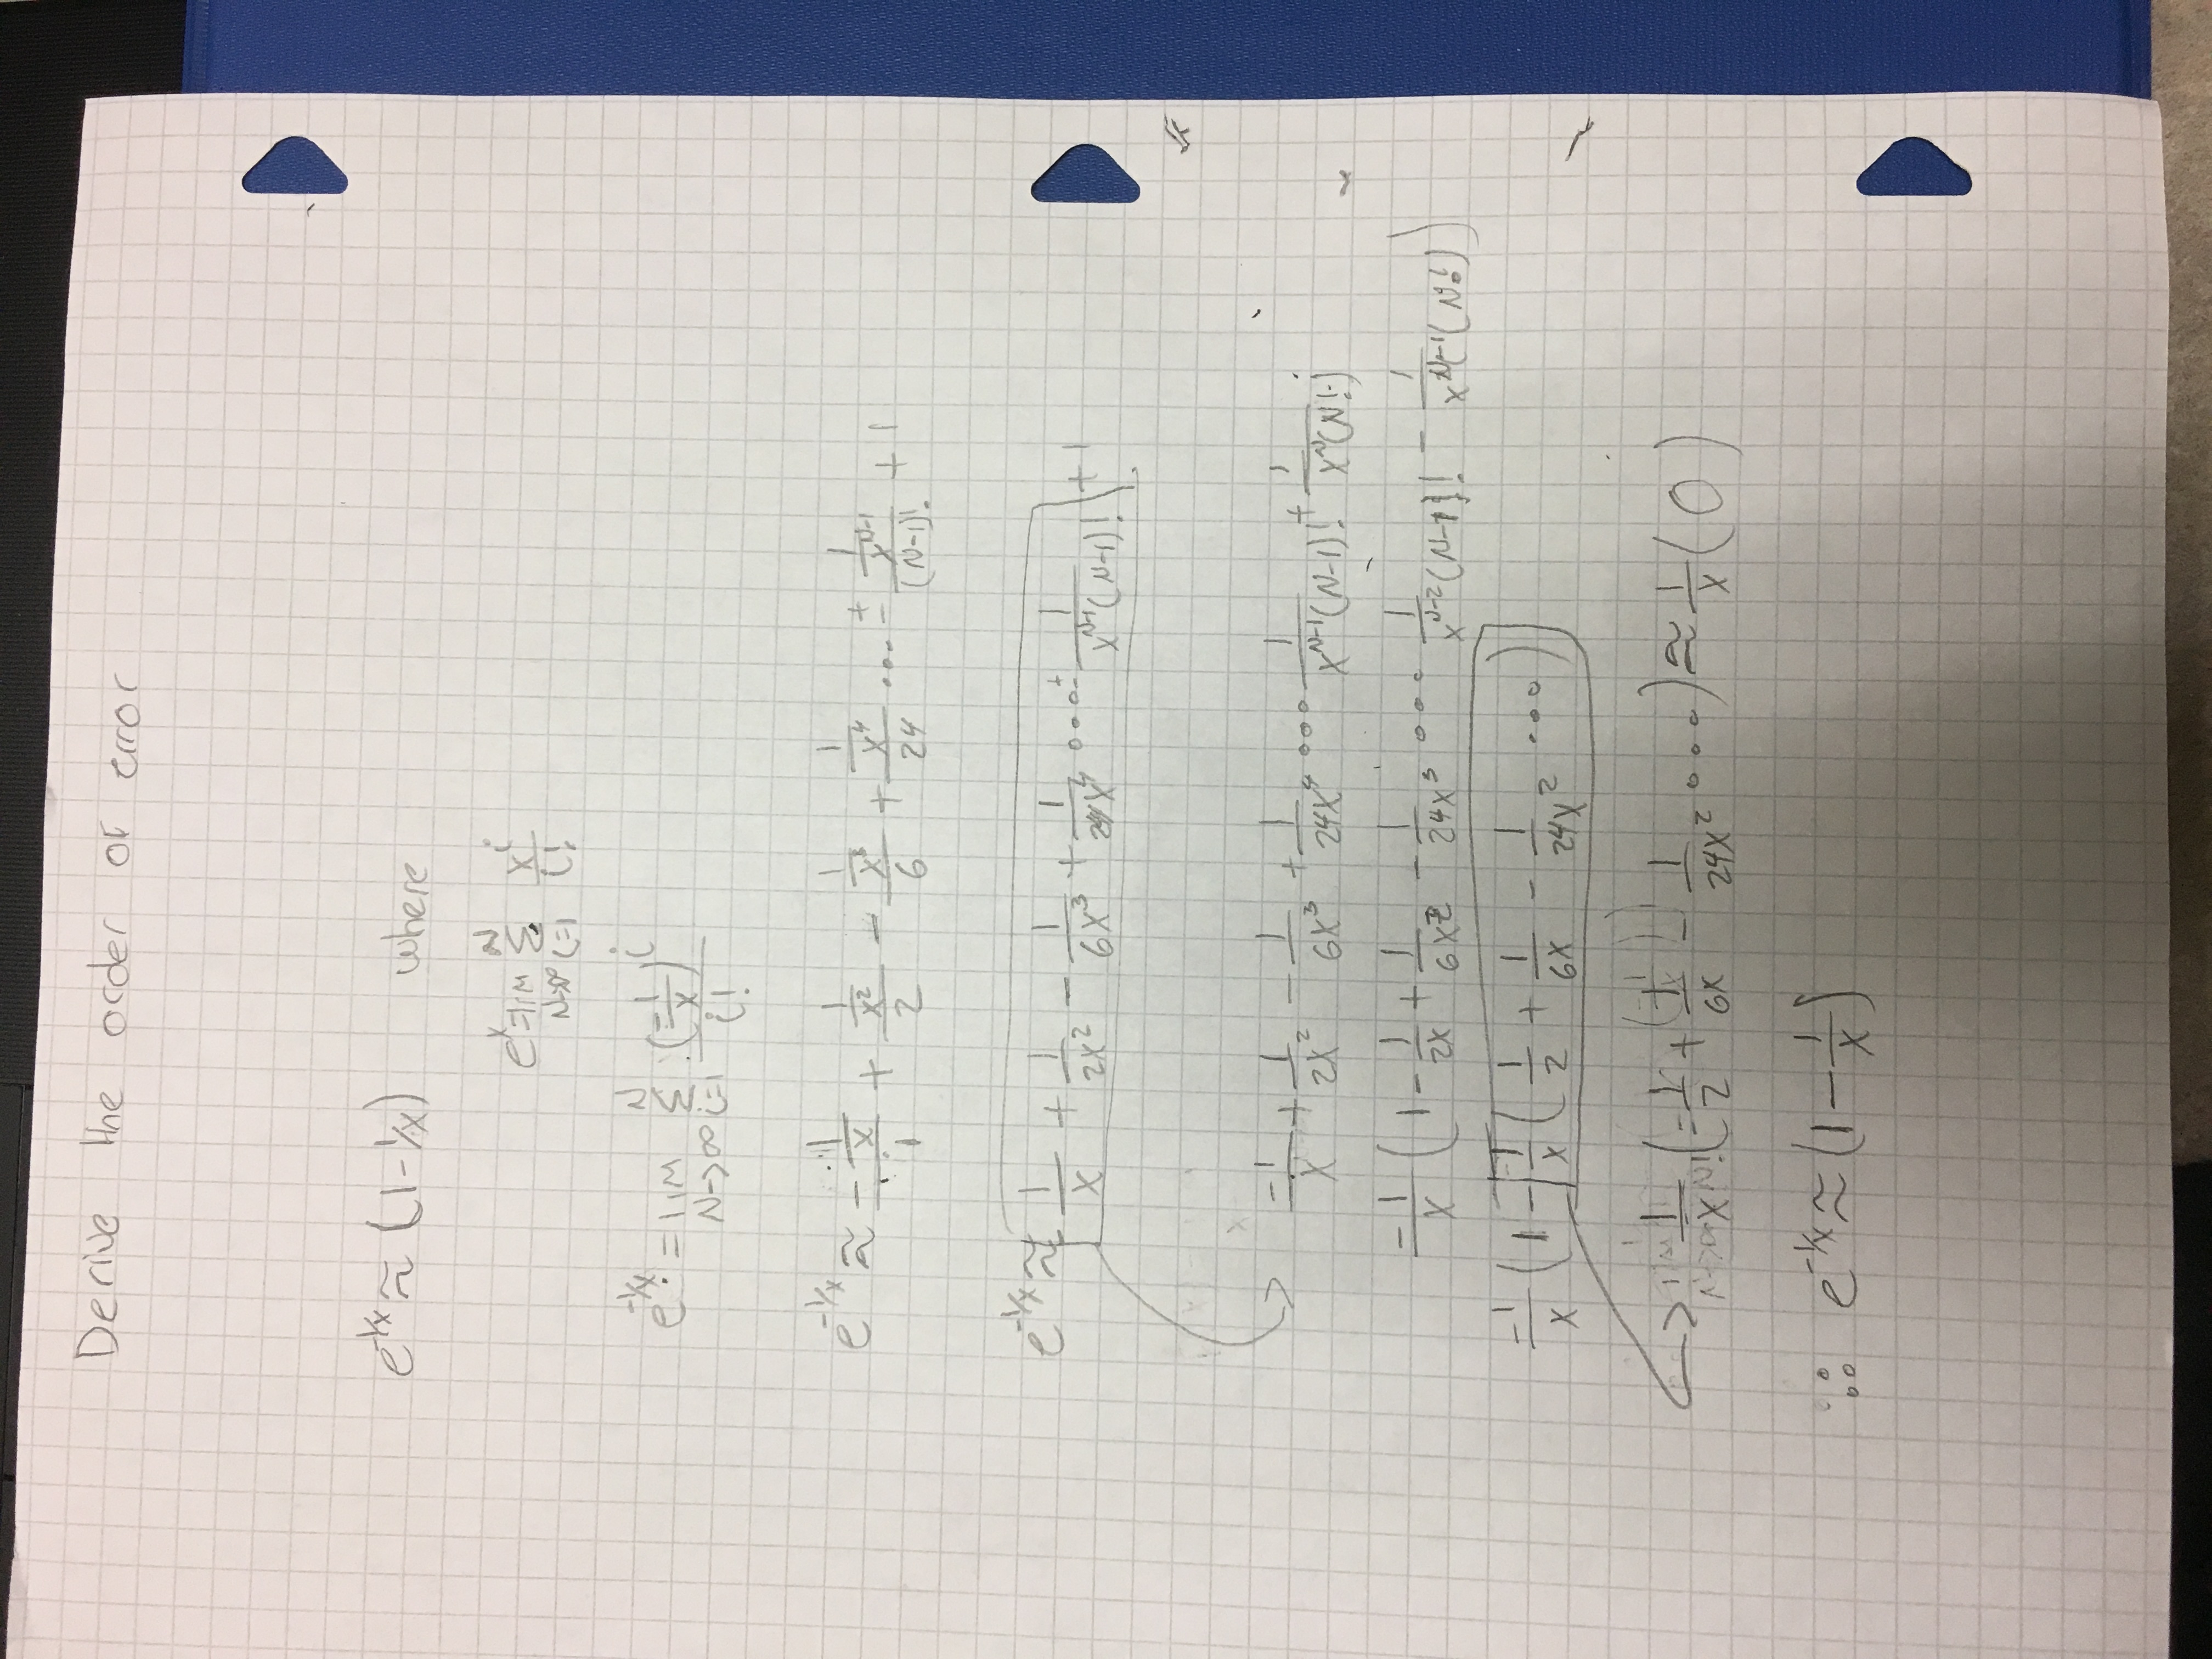 Derive the order of error
e^{-1/x} ≈ (1 - 1/x) where
e^x = lim_{N->∞} Σ_{i=1}^{N} x^i / i!
e^{-1/x} = lim_{N->∞} Σ_{i=1}^{N} (-1/x)^i / i!
e^{-1/x} ≈ -(1/x)/1 + (1/x^2)/2 - (1/x^3)/6 + (1/x^4)/24 ... ± (1/x^{N-1})/(N-1)! + 1
e^{-1/x} ≈ -1/x + 1/2x^2 - 1/6x^3 + 1/24x^4 ... ± 1/x^{N-1}(N-1)! + 1
-> -1/x + 1/2x^2 - 1/6x^3 + 1/24x^4 ... 1/x^{N-1}(N-1)! + 1/x^N(N!)
-1/x (1 - 1/2x + 1/6x^2 - 1/24x^3 ... 1/x^{N-2}(N-1)! - 1/x^{N-1}(N!))
-1/x (1 - 1/x (1/2 + 1/6x - 1/24x^2 ...)
-> 1/x (-1/2 + 1/6x - 1/24x^2 ...) ≈ 1/x (0)
∴ e^{-1/x} ≈ (1 - 1/x)